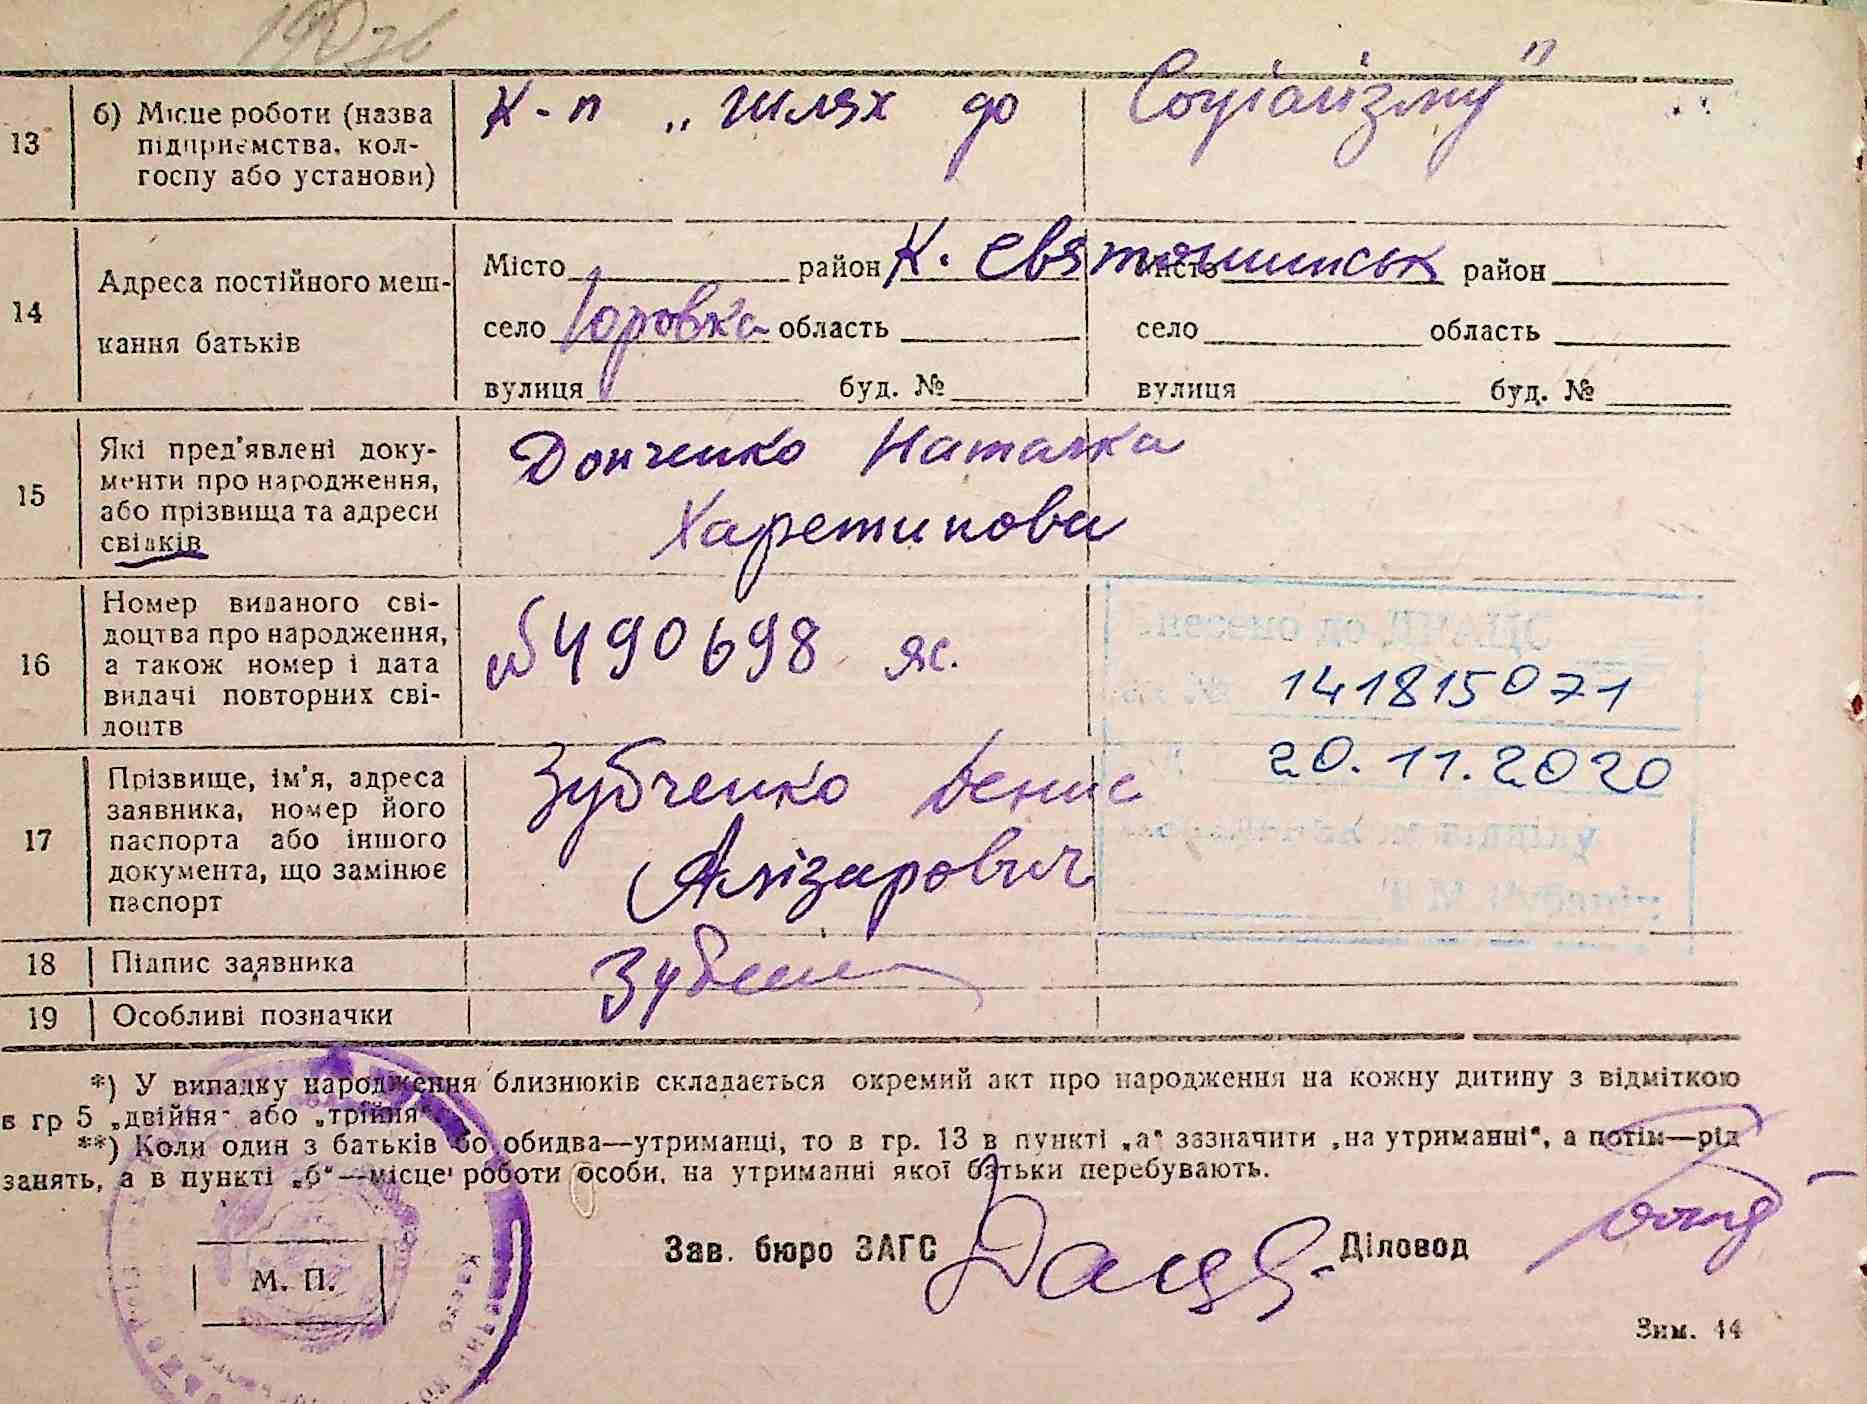 13
б) Місце роботи (назва
підприємства, кол-
госпу або установи)
К-п „Шлях до Соціалізму"
14
Адреса постійного меш-
кання батьків
Місто район К. Святошинськ Місто район
село Юровка область село область
вулиця буд. № вулиця буд. №
15
Які пред'явлені доку-
менти про народження,
або прізвища та адреси
свідків
Донченко Наталка
Харетинова
16
Номер виданого сві-
доцтва про народження,
а також номер і дата
видачі повторних сві-
доцтв
№ 490698 яс.
141815071
20.11.2020
17
Прізвище, ім'я, адреса
заявника, номер його
паспорта або іншого
документа, що замінює
паспорт
Зубченко Денис
Алізарович
18
Підпис заявника
19
Особливі позначки
*) У випадку народження близнюків складається окремий акт про народження на кожну дитину з відміткою
в гр 5 „двійня" або „трійня".
**) Коли один з батьків бо обидва—утриманці, то в гр. 13 в пункті „а" зазначити „на утриманні", а потім—рід
занять, а в пункті „б"—місце роботи особи, на утриманні якої батьки перебувають.
Зав. бюро ЗАГС Діловод
М. П.
Зим. 44